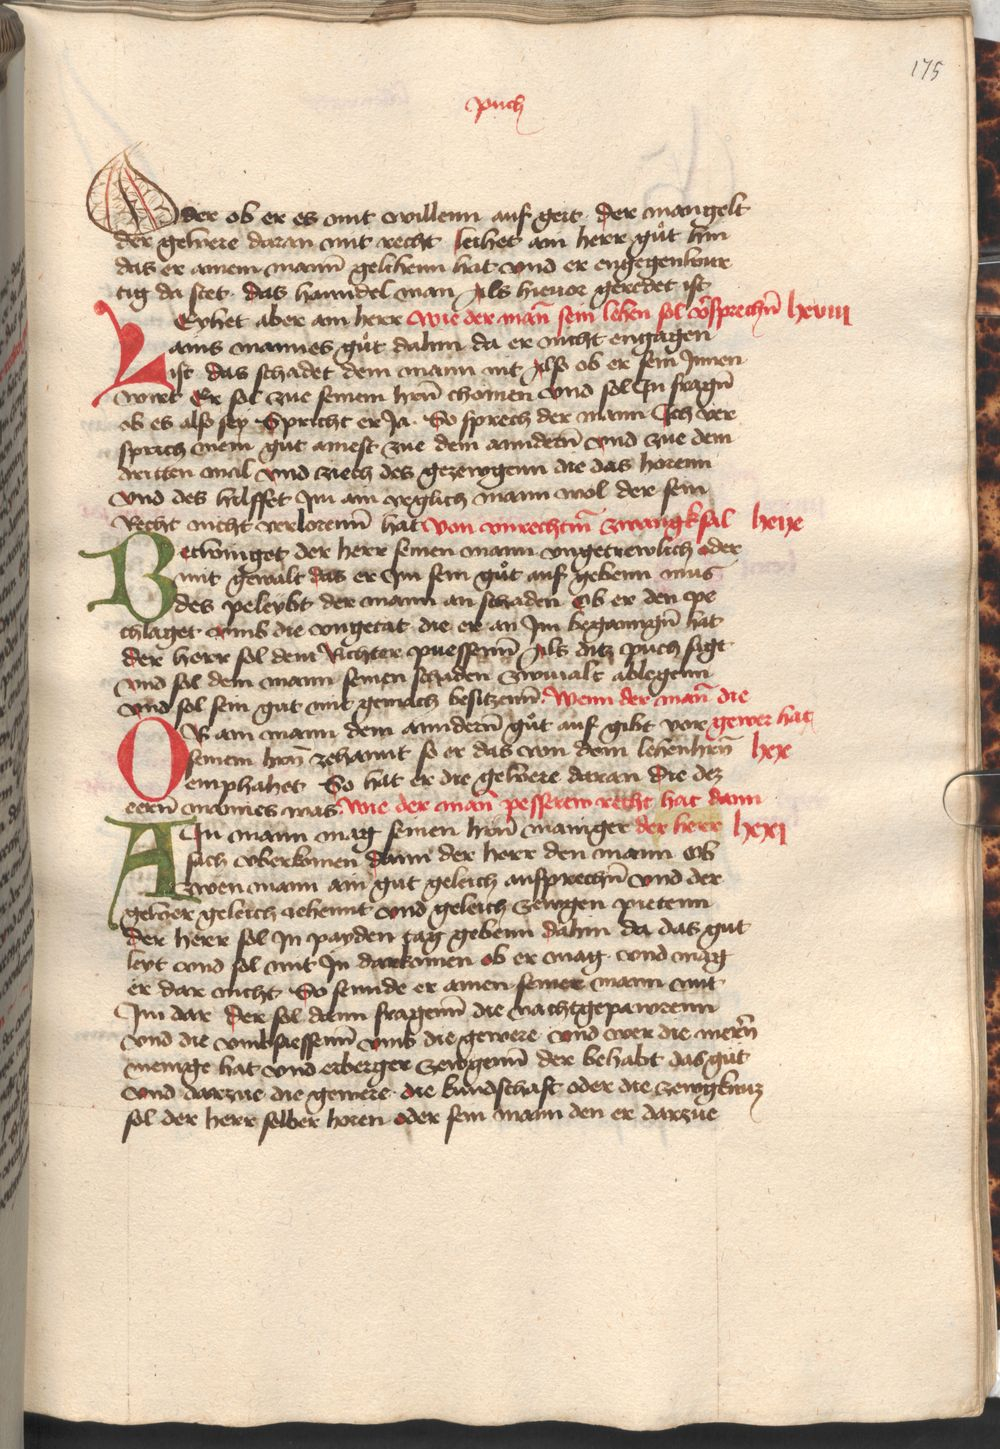 175
puch
Oder ob er es mit willenn auf gert · der mangelt
der gewere daran mit recht leihet ain herr gůt hin
das er ainem mann gelihenn hat vnd er engegenbur
tig da stet · das hanndel man Als hieuor geredet ist
LEyhet aber ain herr wie der man̄ sein lehen sol v̄sprechn̄ lxviiii
ains mannes gůt dahin da er nicht engagen
ist das schadet dem mann nit Also ob er sein Innen
wirt Er sol zue seinem hrn̄ chomen vnd sol In fragn̄
ob es also sey Spricht er Ja · So sprech der mann Ich ver
sprich mein gut ainest zue dem anndern̄ vnd zue dem
dritten mal vnd ziech des gezewgenn die das horenn
vnd des hilffet Im ain yeglich mann wol der sein
Recht nicht verlorenn̄ hat von vnrechtm̄ zwangksal lxx
Betwinget der herr seinen mann vngetrewlich oder
mit gewalt das er Im sein gůt auf gebenn mus
des peleybt der mann an schaden Ob er den pe
chlaget vmb die vngetat die er an Im beganngn̄ hat
der herr sol dem Richter puessenn̄ Als ditz puch sagt
vnd sol dem mann seinen schaden zwiualt ablegenn
vnd sol sein gut mit gemach besitzenn̄ · Wenn der man̄ die
OB ain mann dem anndern̄ gůt auf gibt vor gewer hat
seinem hrn̄ zehannt so er das von dem lehenhrn̄ lxx
emphahet So hat er die gewere daran die dez
eern̄ mannes was · Wie der man̄ pesserew recht hat dann
AIn mann mag seinen hrn̄ maniger der herr lxxi
sach vberkomen dann der herr den mann Ob
zwen mann ain gut geleich ansprechn̄ vnd der
gewer geleich iehennt vnd geleich zewgen pietenn
der herr sol In payden tag gebenn dahin da das gut
leyt vnd sol mit In dar komen ob er mag · vnd mag
er dar nicht So sennde er ainen seiner mann mit
Im dar der sol dann fragenn̄ die nachtgepawrenn
vnd die vmbsiessenn̄ vmb die gewere vnd wer die mern̄
menige hat vnd erberger zewgenn̄ der behabt das gůt
vnd darzue die gewere die kundschaft oder die zewgknuz
sol der herr selber horen oder sein mann den er darzue